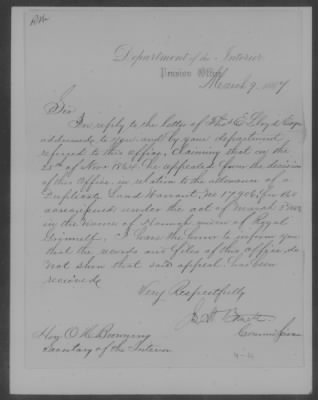 Department of the Interior
Pension Office
March 9, 1867
Sir
In reply to the letter of E. Lloyd Esqr
addressed to you and by your department
referred to this office, claiming that on the
25th of Nov 1864 he appealed from the decision
of this Office, in relation to the allowance of a
Duplicate Land Warrant, No 17906, for 160
acres issued under the act of March 3d
in the name of Hannah widow of
Grinnell, I have the honor to inform you
that the records and files of this office, do
not show that said appeal has been
received.
Very Respectfully
Commissioner
Hon O H Browning
Secretary of the Interior